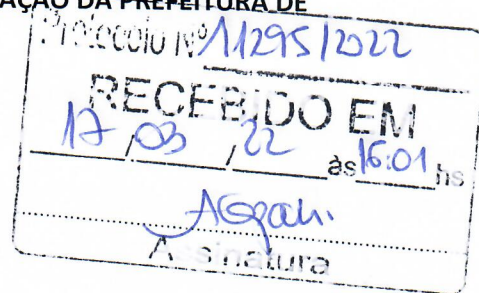 AÇÃO DA PREFEITURA DE
Protocolo Nº 11295/2022
RECEBIDO EM
17/03/22 às 16:01 hs
Assinatura